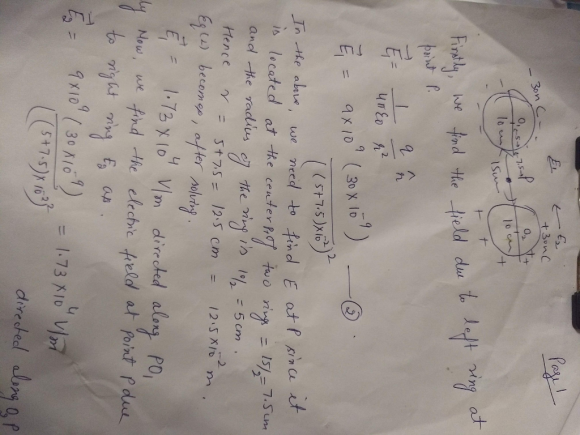 Page 1
- 30nC - E1 ← E2 + 30nC
O1 5cm 7.5cm P O2
10cm 15cm 10cm
Firstly, we find the field due to left ring at
point P.
E1 = 1/4πε0 q/r² r̂
E1 = 9x10^9 (30x10^-9) / ((5+7.5)x10^-2)² — ②.
In the above, we need to find E at P since it
is located at the center of two rings = 15/2 = 7.5cm
and the radius of the ring is 10/2 = 5cm.
Hence r = 5+7.5 = 12.5 cm = 12.5x10^-2 m.
Eq(2) becomes, after solving.
E1 = 1.73x10^4 V/m directed along PO1
Now, we find the electric field at point P due
to right ring E2 as.
E2 = 9x10^9 (30x10^-9) / ((5+7.5)x10^-2)² = 1.73x10^4 V/m
directed along O2P